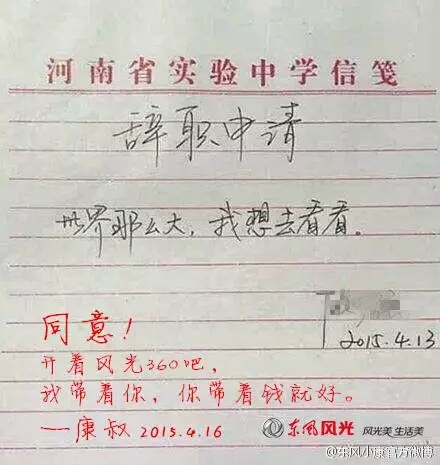 河南省实验中学信笺
辞职申请
世界那么大，我想去看看。
2015.4.13
同意！
开着风光360吧，
我带着你，你带着钱就好。
——康叔 2015.4.16
东风光 风光美 生活美
@东风小康官方微博